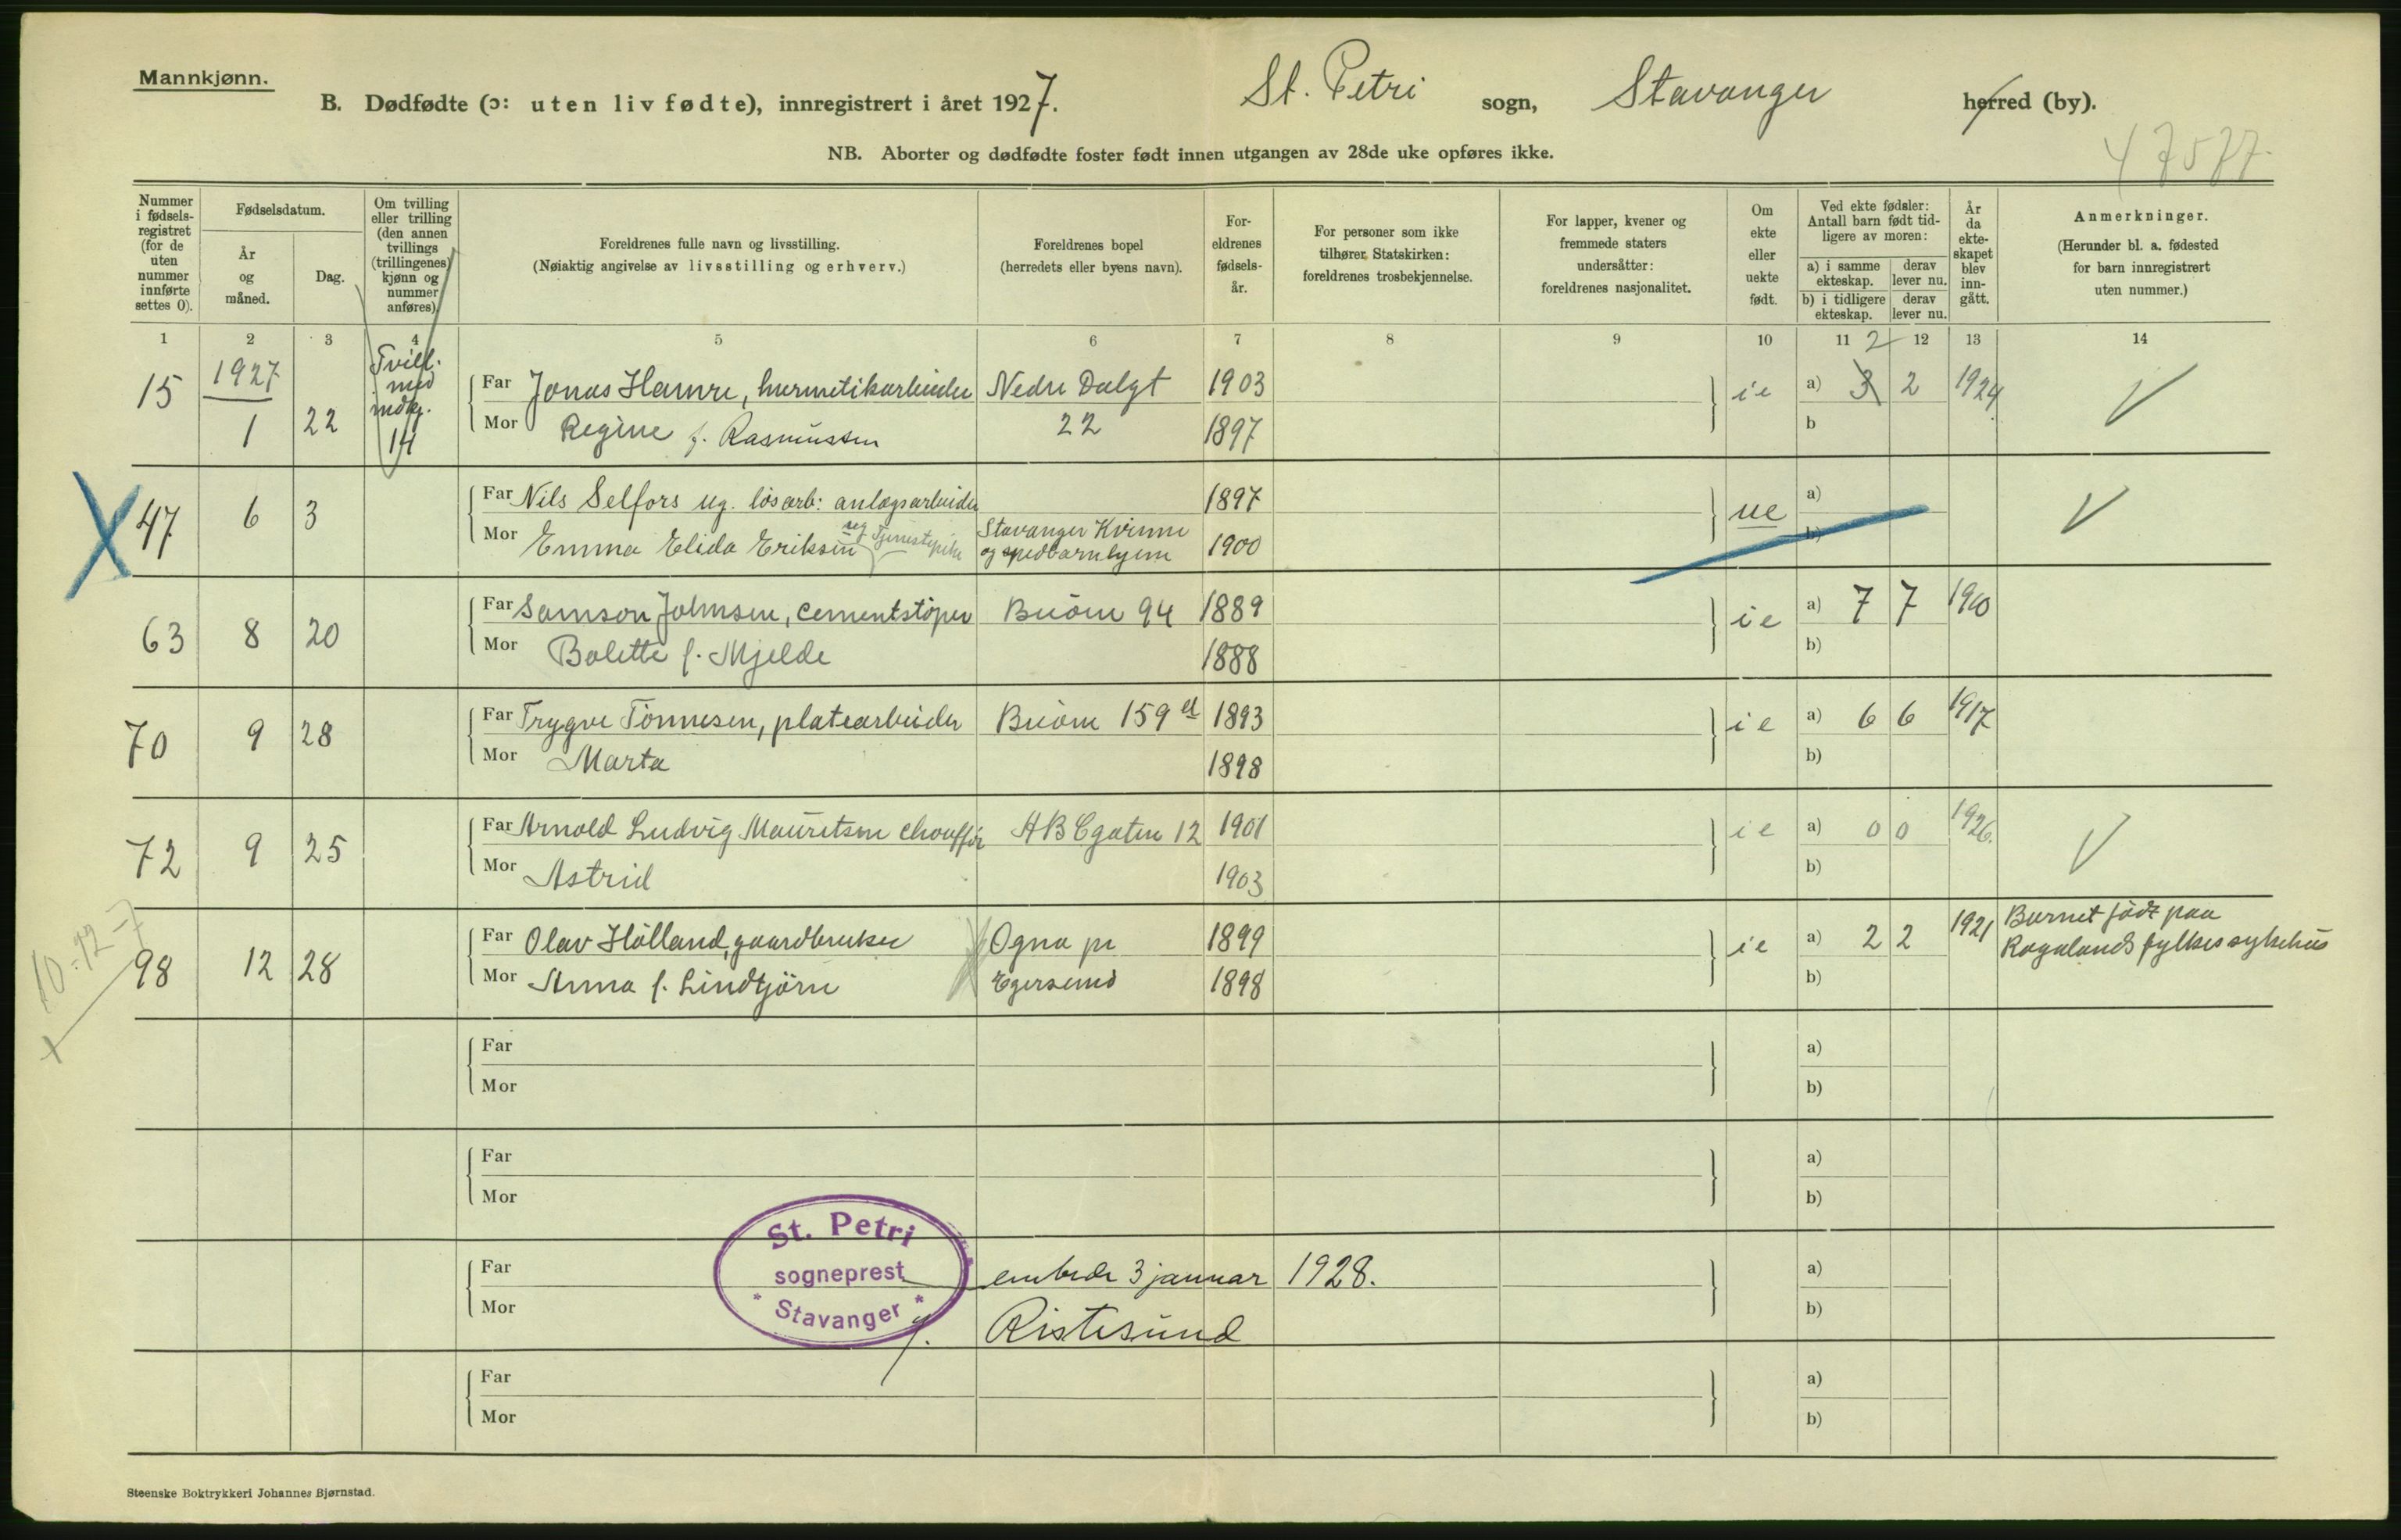 Mannkjønn.
B. Dødfødte (ɔ: uten liv fødte), innregistrert i året 1927. St. Petri sogn, Stavanger herred (by).
47577.
NB. Aborter og dødfødte foster født innen utgangen av 28de uke opføres ikke.
Nummer i fødsels-registret (for de uten nummer innførte settes 0).
Fødselsdatum.
År og måned.
Dag.
Om tvilling eller trilling (den annen tvillings (trillingenes) kjønn og nummer anføres).
Foreldrenes fulle navn og livsstilling.
(Nøiaktig angivelse av livsstilling og erhverv.)
Foreldrenes bopel
(herredets eller byens navn).
For-eldrenes fødsels-år.
For personer som ikke tilhører Statskirken: foreldrenes trosbekjennelse.
For lapper, kvener og fremmede staters undersåtter: foreldrenes nasjonalitet.
Om ekte eller uekte født.
Ved ekte fødsler: Antall barn født tid-ligere av moren:
a) i samme ekteskap. derav lever nu.
b) i tidligere ekteskap. derav lever nu.
År da ekte-skapet blev inn-gått.
Anmerkninger.
(Herunder bl. a. fødested for barn innregistrert uten nummer.)
1 2 3 4 5 6 7 8 9 10 11 12 13 14
15 1927 1 22 Tvill. med indkj. 14
Far Jonas Hamre, hermetikarbeider Nedre Dalgt 1903 ie a) 3 2 2 1924
Mor Regine f. Rasmussen 22 1897 b
47 6 3
Far Nils Selfors ug. løsarb: anlægsarbeider 1897 ue a)
Mor Emma Elida Eriksen ug Tjenestepike Stavanger Kvinne og spedbarnhjem 1900 b)
63 8 20
Far Samson Johnsen, cementstøper Buøen 94 1889 ie a) 7 7 1910
Mor Bolette f. Mjelde 1888 b)
70 9 28
Far Trygve Tønnesen, platearbeider Buøen 159 d 1893 ie a) 6 6 1917
Mor Marta 1898 b)
72 9 25
Far Arnold Ludvig Mauritsen chauffør ABCgaten 12 1901 ie a) 0 0 1926.
Mor Astrid 1903 b)
10-12-7
98 12 28
Far Olav Hålland, gaardbruker Ogna pr 1899 ie a) 2 2 1921 Barnet født paa Rogalands fylkessykehus
Mor Anna f. Lindtjørn Egersund 1898 b)
Far a)
Mor b)
Far a)
Mor b)
St. Petri
sogneprest
* Stavanger *
Far embede 3 januar 1928. a)
Mor Ristesund b)
Far a)
Mor b)
Steenske Boktrykkeri Johannes Bjørnstad.